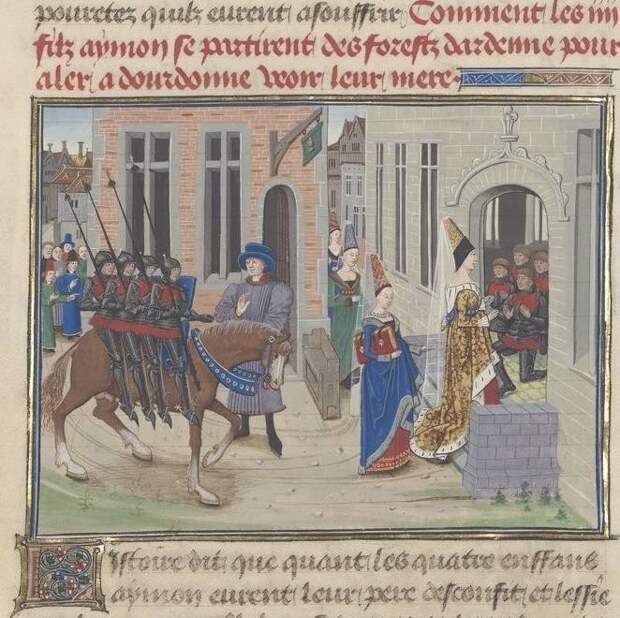 pouretez quilz eurent a souffrir Comment les iiii
filz aymon se partirent des forestz dardenne pour
aler a dourdonne veoir leur mere
Istoire dit que quant les quatre enffans
aymon eurent leur pere desconfit et lessie